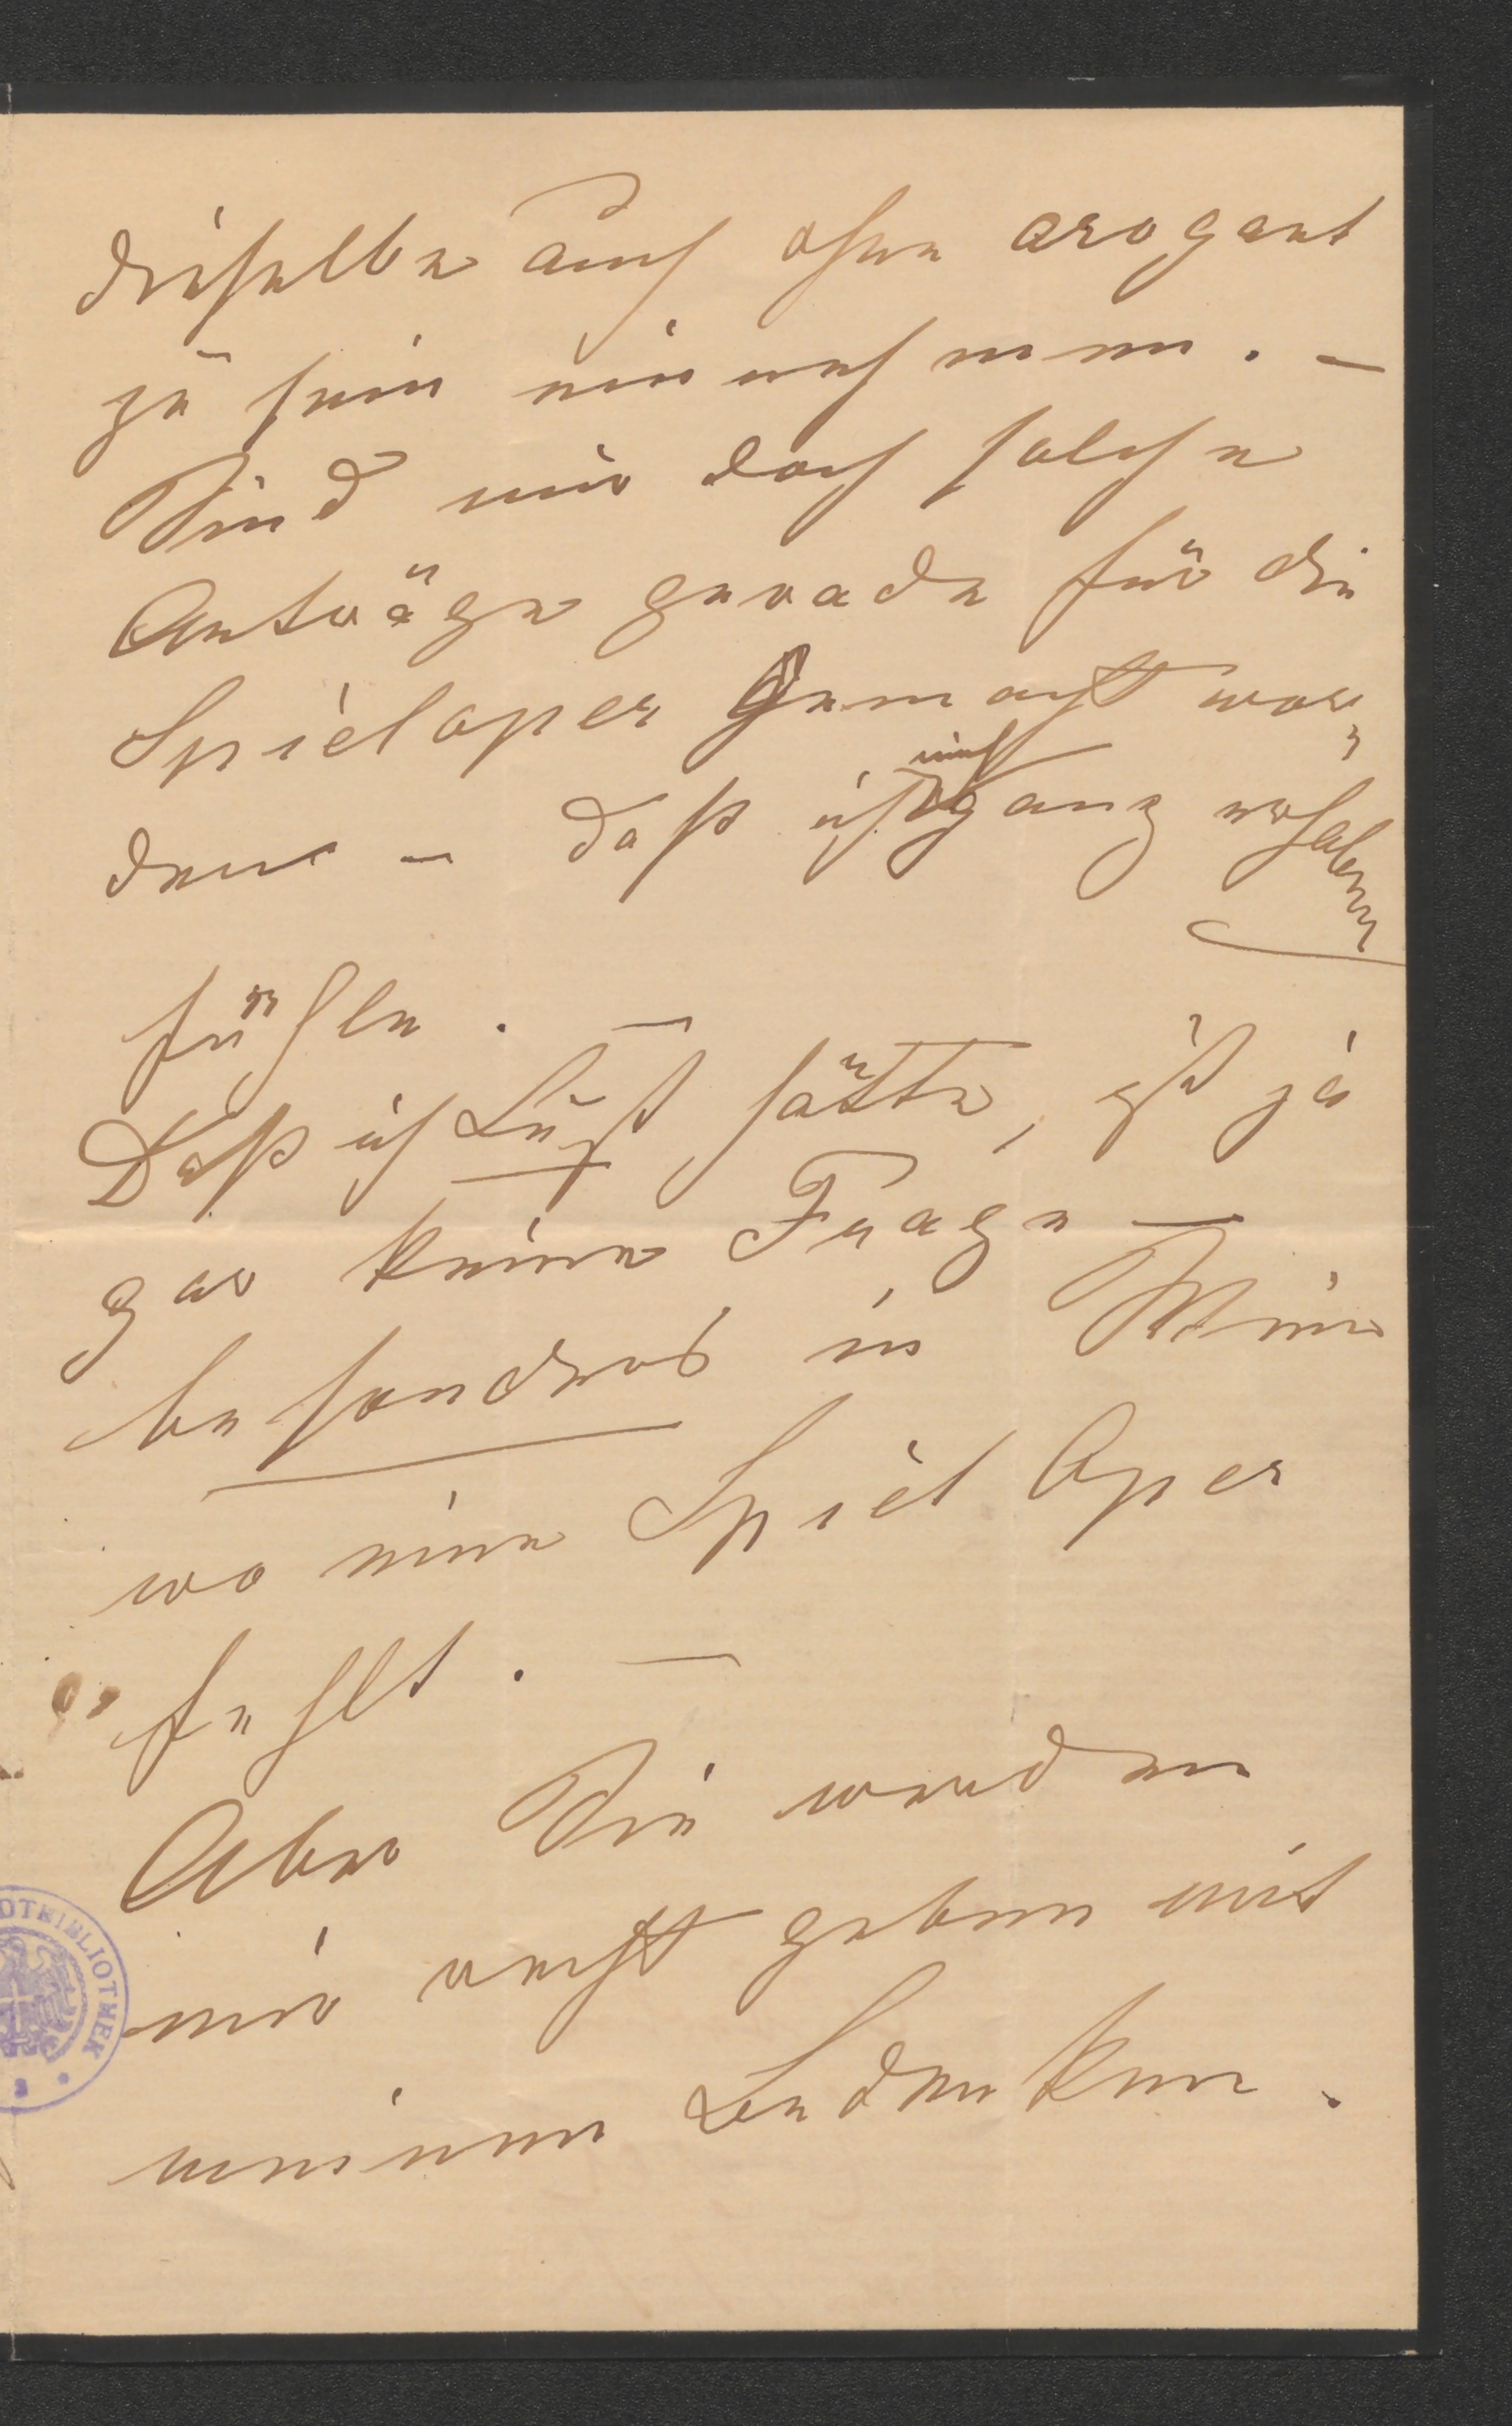 dieselbe auch ohne arogant
zu sein einnehmen. —
Sind mir doch solche
Anträge gerade für die
Spieloper gemacht wor-
den — daß ich mich ganz erhaben
fühle. —
Daß ich Lust hätte, ist ja
gar keine Frage —
besonders in Wien
wo eine Spiel Oper
fehlt. —
Aber Sie werden
mir recht geben mit
meinem Bedenken.